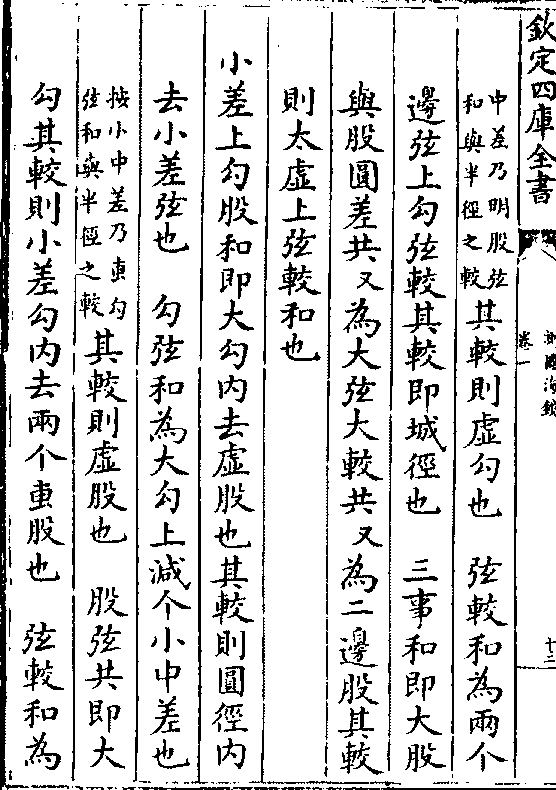 欽定四庫全書
卷一
十二
中差乃明股弦
和與半徑之較其較則虛勾也 弦較和為兩个
邊弦上勾弦較其較即城徑也 三事和即大股
與股圓差共又為大弦大較共又為二邊股其較
則太虛上弦較和也
小差上勾股和即大勾內去虛股也其較則圓徑內
去小差弦也 勾弦和為大勾上減个小中差也
按小中差乃叀勾
弦和與半徑之較其較則虛股也 股弦共即大
勾其較則小差勾內去兩个叀股也 弦較和為